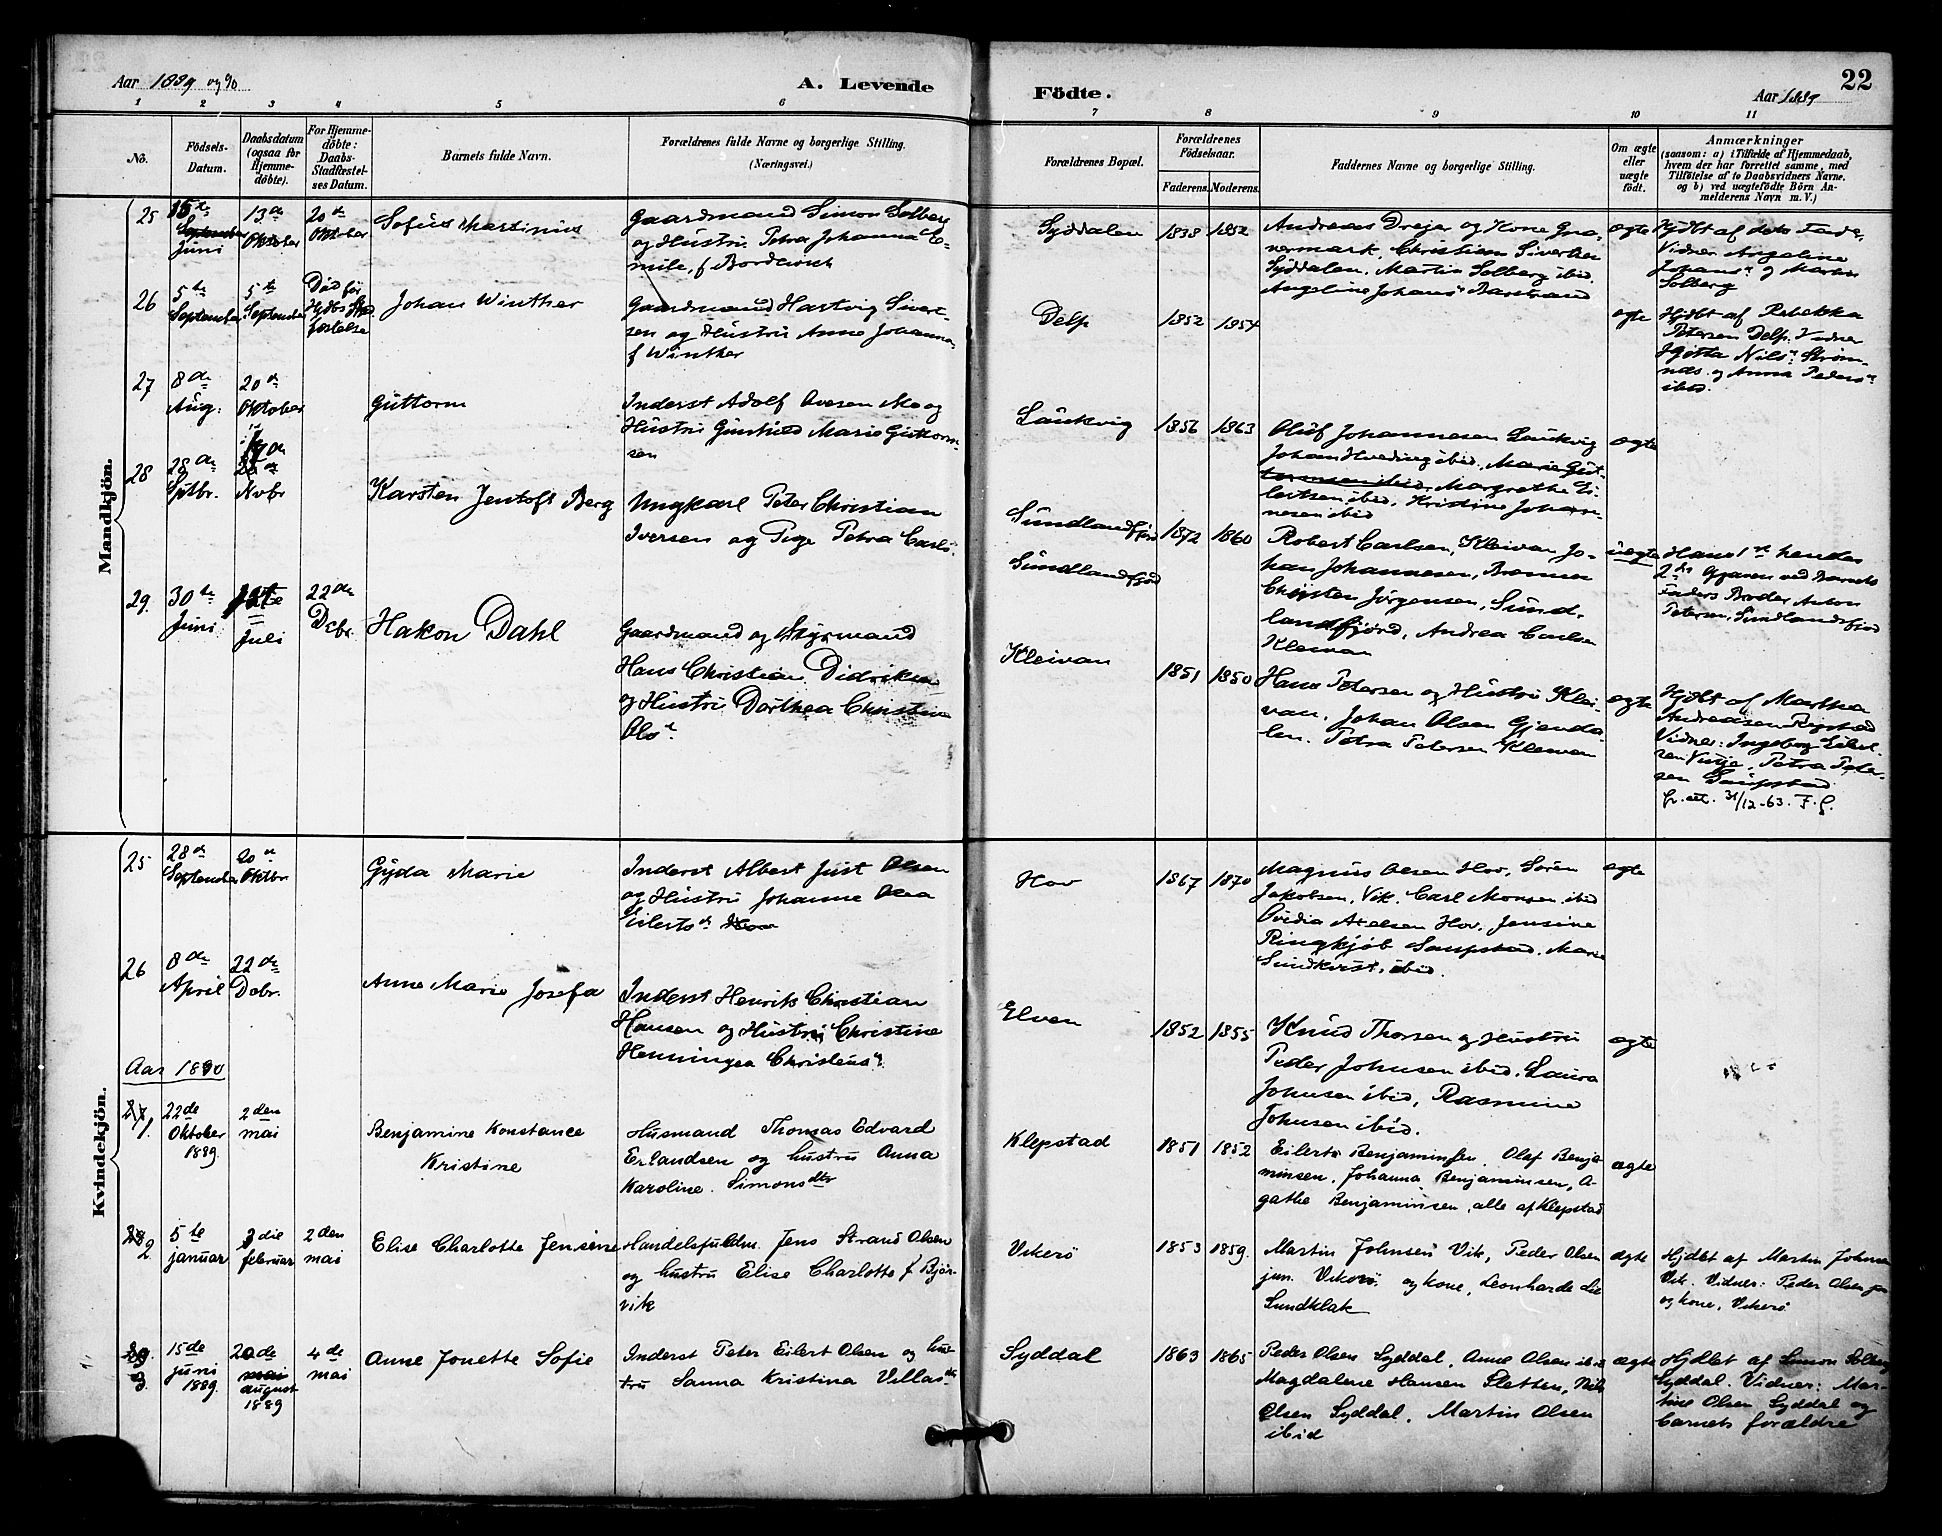 Aar 1889 og 90
A. Levende
Födte.
Aar 1889
22
1 2 3 4 5 6 7 8 9 10 11
No.
Födsels-
Datum.
Daabsdatum
(ogsaa for
Hjemme-
döbte).
For Hjemme-
döbte:
Daabs-
Stadfæstel-
ses Datum.
Barnets fulde Navn.
Forældrenes fulde Navne og borgerlige Stilling.
(Næringsvei.)
Forældrenes Bopæl.
Forældrenes
Födselsaar.
Faderens. Moderens.
Faddernes Navne og borgerlige Stilling.
Om ægte
eller
uægte
födt.
Anmærkninger
(saasom: a) i Tilfælde af Hjemmedaab,
hvem der har forrettet samme, med
Tilföielse af to Daabsvidners Navne,
og b) ved uægtefödte Börn An-
melderens Navn m. V.)
Mandkjön.
25
15de
September
Juni
13de
Oktober
20de
Oktober
Sofus Martinius
Gaardmand Simon Solberg
og Hustru Petra Johanna E-
milie, f
Syddalen
1838
1852
Andreas Drejer og Kone
Christian Sivertsen
Syddalen. Martin Solberg ibid.
Angeline Johans
ægte
Hjdbt af dets Fader,
Vidner Angeline
Johans og Martin
Solberg
26
5te
September
5te
September
Död för
Hjdbs Stad
fæstelse
Johan Winther
Gaardmand Hartvig Siver-
sen og Hustru Anne Johanna
f Winther
Delp
1852
1854
ægte
Hjdbt af Rebekka
Petersen Delp. Vidner
Nils
og Anna Peders
ibid.
27
8de
Aug.
20de
Oktober
Guttorm
Inderst Adolf Ovesen Mo og
Hustru Gunhild Marie Guttorm-
sen
Laukvig
1856
1863
Oluf Johannesen Laukvig
Johan Hveding ibid, Marie Gut-
tormsen ibid, Margrethe Ei-
lertsen ibid, Kristine Johan-
nesen ibid
ægte
28
28de
Sptbr.
Nvbr
Karsten Jentoft Berg
Ungkarl Peter Christian
Iversen og Pige Petra Carls.
Sundlandsfjord
Sundlandsfjord
1872
1860
Robert Carlsen, Kleivan, Jo-
han Johannesen, Brenna
Christen Jörgensen, Sund-
landsfjord, Andrea Carlsen
Kleivan
uægte
Hans 1ste hendes
2den Gjæren ved Barnets
Faders Broder Anton
Petersen, Sundlandsfjord
29.
30te
Juni
Juli
22de
Dcbr.
Hakon Dahl
Gaardmand og Styrmand
Hans Christian Didriksen
og Hustru Dorthea Christine
Ols
Kleivan
1851
1850
Hans Petersen og Hustru Klei-
van, Johan Olsen Gjerda-
len. Petra Petersen Kleivan
ægte
Hjdbt af Martha
Andreasen
Vidner: Ingeborg Eilert-
sen Vestje, Petra Peter-
sen Saupstad
Fr. att. 31/12-63. F.G.
Kvindekjön.
25
28de
September
20de
Oktbr
Gyda Marie
Inderst Albert Just Olsen
og Hustru Johanne Olea
Eilerts
Hov
1867
1870
Magnus Olsen Hov, Sören
Jakobsen, Vik, Carl Monsen ibid
Ovidia Axelsen Hov. Jensine
Ringkjöb Saupstad, Marie
Sundkvist, ibid.
ægte
26
8de
April
22de
Dcbr.
Anne Marie Josefa
Inderst Henrik Christian
Hansen og Hustru Christine
Henningea Christens
Elven
1852
1855
Knud Thorsen og Hustru
Peder Johnsen ibid. Laura
Johnsen ibid, Rasmine
Johnsen ibid.
ægte
Aar 1890
1.
22de
Oktober
1889
2den
mai
Benjamine Konstance
Kristine
Husmand Thomas Edvard
Erlandsen og hustru Anna
Karoline Simonsdtr
Klepstad
1851
1852
Eilert Benjaminsen, Olaf Benja-
minsen, Johanna Benjaminsen, A-
gathe Benjaminsen, alle af Klepstad
ægte
2
5te
januar
3die
februar
2den
mai
Elise Charlotte Jensine
Handelsfuldm. Jens Strand Olsen
og hustru Elise Charlotte f Björ-
vik
Vikerö
1853
1859.
Martin Johnsen Vik, Peder Olsen
jun. Vikerö og kone, Leonharde Lie
Sundklak
ægte
Hjdbt af Martin Johnsen
Vik. Vidner: Peder Olsen jun
og kone, Vikerö
3.
15de
juni
1889.
20de
mai
august
1889
4de
mai
Anne Jonette Sofie
Inderst Peter Eilert Olsen og hus-
tru Sanna Kristina Villas dtr
Syddal
1863
1865
Peder Olsen Syddal, Anne Olsen ibid
Magdalene Hansen Sletten, Nils
Olsen Syddal, Martin Olsen
ibid
ægte
Hjdbt af Simon Solberg
Syddal. Vidner: Mar-
tine Olsen Syddal og
barnets forældre